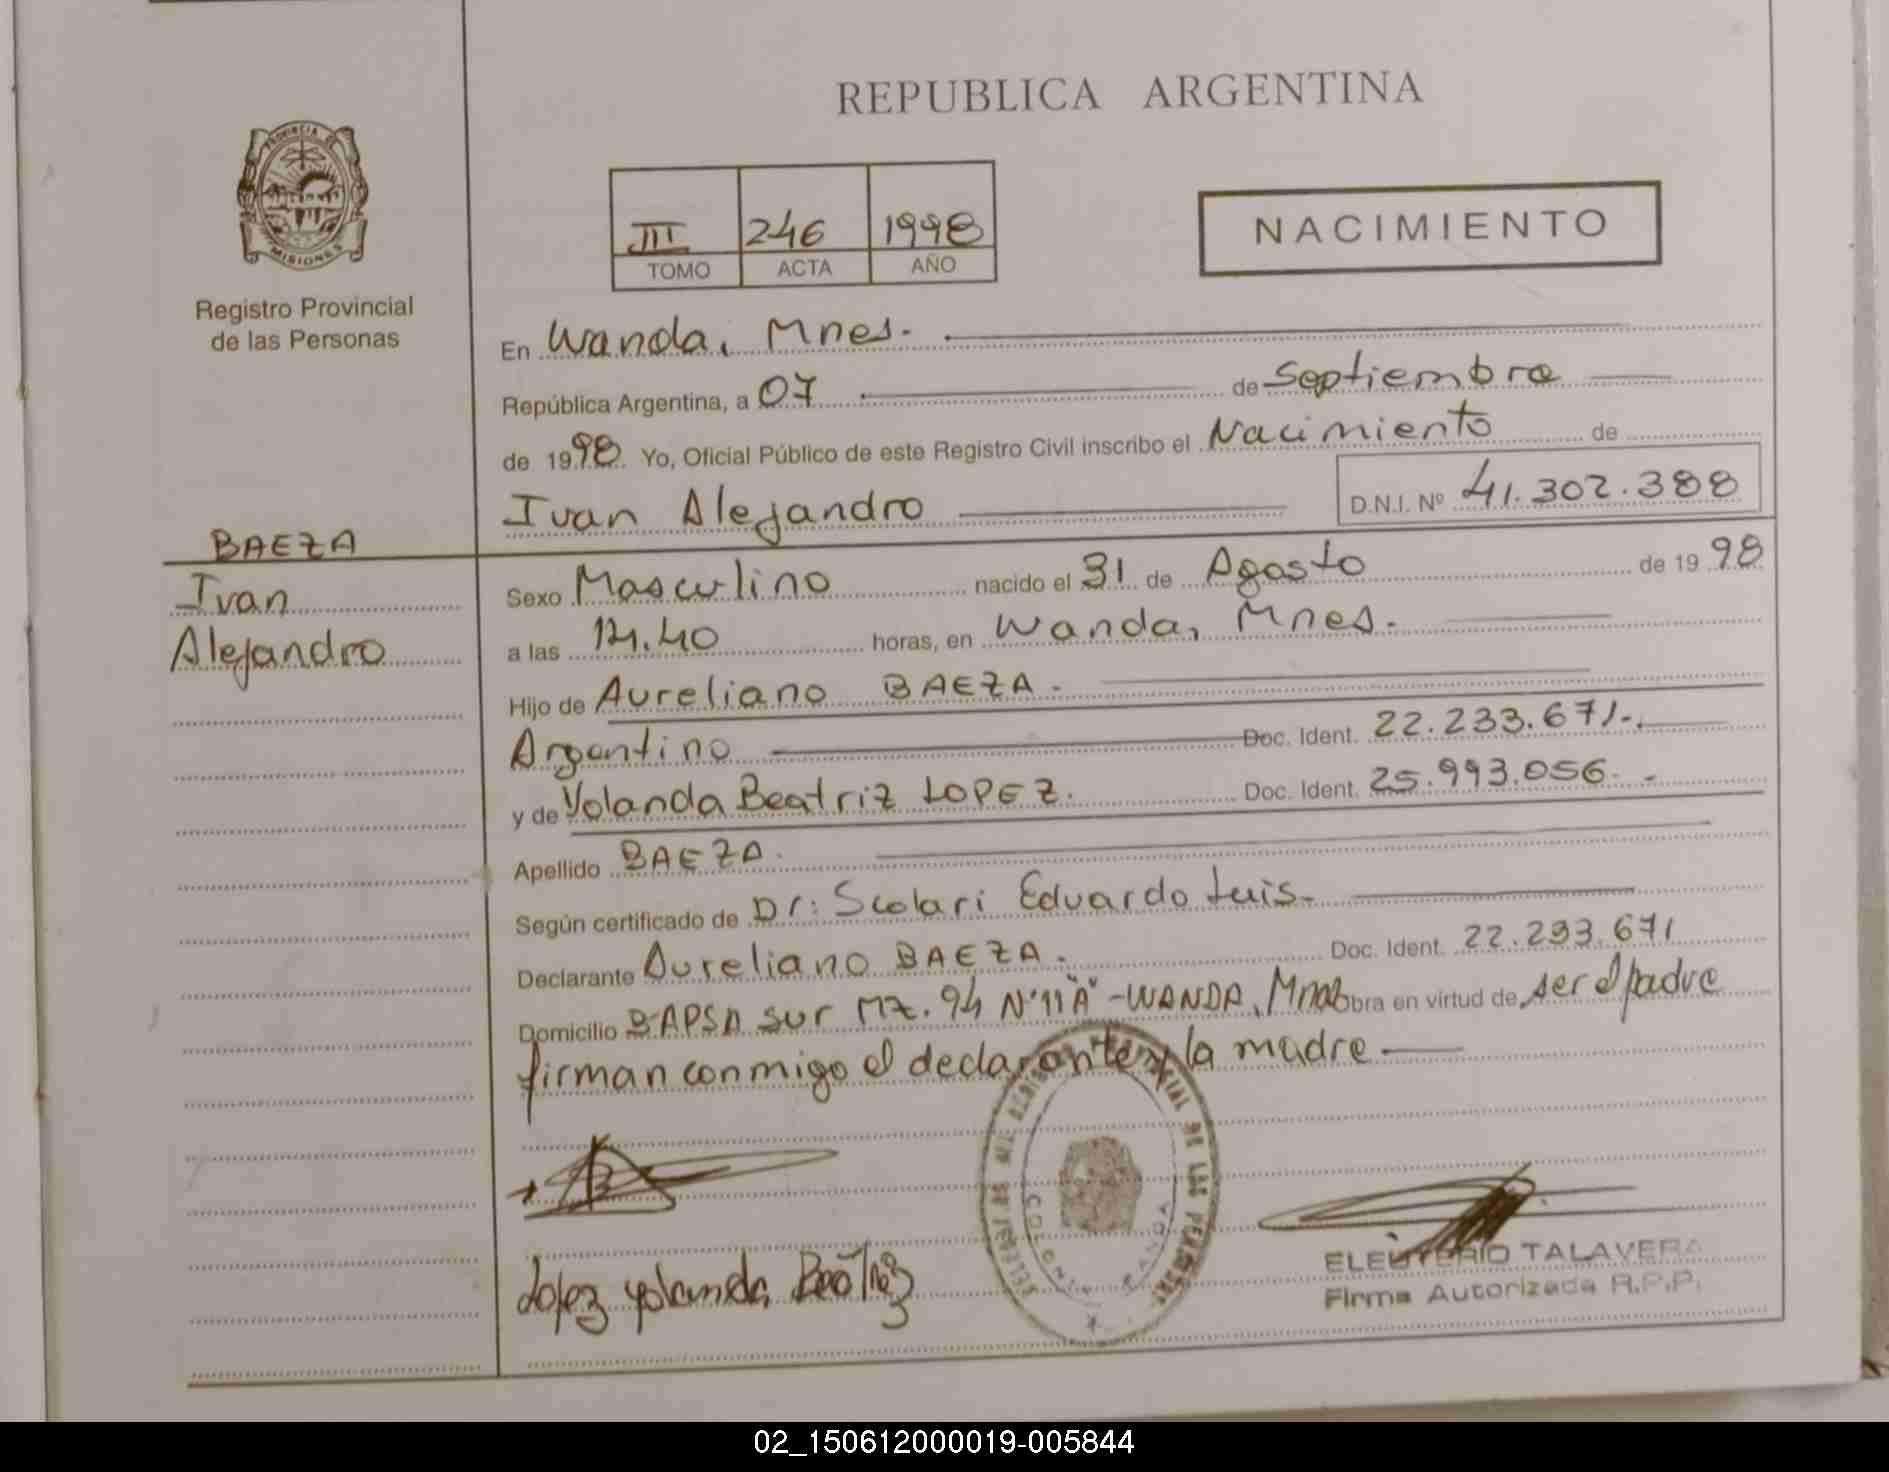 REPUBLICA ARGENTINA
PROVINCIA DE
MISIONES
Registro Provincial
de las Personas
III 246 1998
TOMO ACTA AÑO
NACIMIENTO
En Wanda, Mnes.
República Argentina, a 07 de Septiembre
de 1998 Yo, Oficial Público de este Registro Civil inscribo el Nacimiento de
Ivan Alejandro D.N.I. Nº 41.302.388
BAEZA
Ivan
Alejandro
Sexo Masculino nacido el 31 de Agosto de 1998
a las horas, en Wanda, Mnes.
Hijo de Aureliano BAEZA.
Argentino Doc. Ident. 22.233.671.
y de Yolanda Beatriz LOPEZ. Doc. Ident. 25.993.056.
Apellido BAEZA.
Según certificado de Dr: Scolari Eduardo Luis.
Declarante Aureliano BAEZA. Doc. Ident. 22.233.671
Domicilio Bº APSA sur Mz. 94 Nº 11 "A" - WANDA, Mnes obra en virtud de ser el padre
firman conmigo el declarante y la madre
Lopez Yolanda Beatriz
ELEUTERIO TALAVERA
Firma Autorizada R.P.P.
02_150612000019-005844